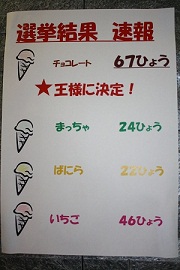 選挙結果 速報
チョコレート 67ひょう
★王様に決定!
まっちゃ 24ひょう
ばにら 22ひょう
いちご 46ひょう